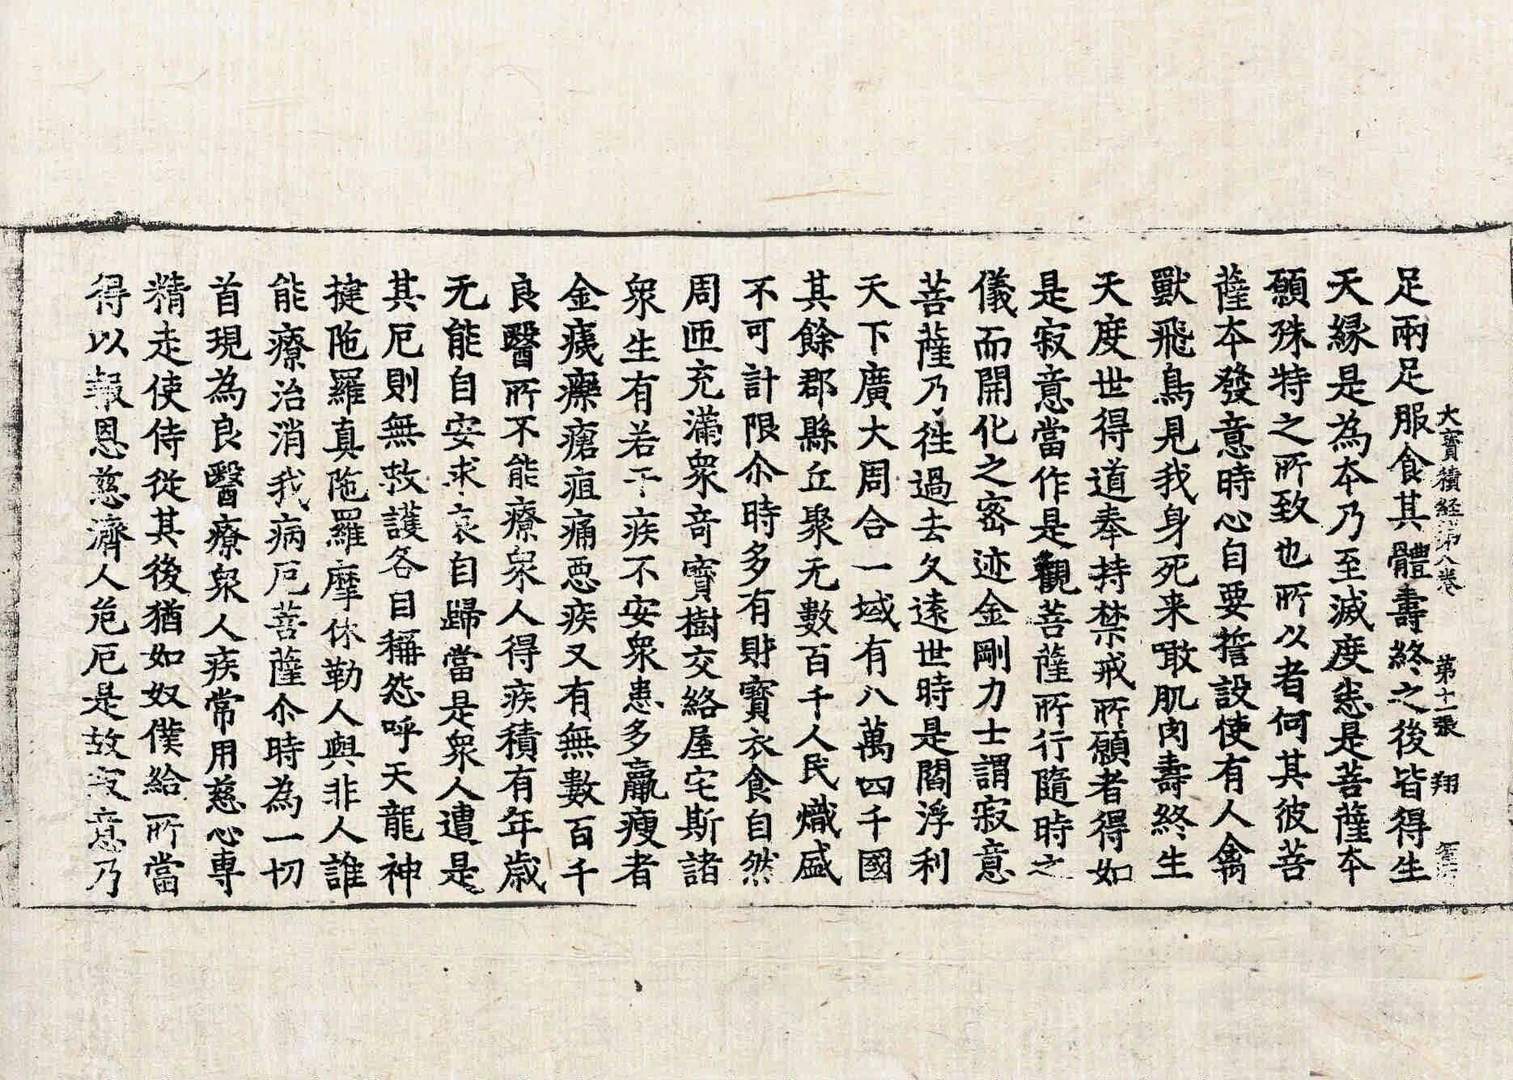 大寶積経第八卷 第十一張 翔
足兩足服食其體壽終之後皆得生
天縁是為本乃至滅度恚是菩薩本
願殊特之所致也所以者何其彼菩
薩本發意時心自要誓設使有人禽
獸飛鳥見我身死来噉肌肉壽終生
天度世得道奉持禁戒所願者得如
是寂意當作是觀菩薩所行隨時之
儀而開化之密迹金剛力士謂寂意
菩薩乃往過去久遠世時是閻浮利
天下廣大周合一域有八萬四千國
其餘郡縣丘聚无數百千人民熾盛
不可計限尒時多有財寶衣食自然
周匝充滿衆竒寶樹交絡屋宅斯諸
衆生有若干疾不安衆患多羸瘦者
金痍癩瘡疽痛惡疾又有無數百千
良醫所不能療衆人得疾積有年歲
无能自安求哀自歸當是衆人遭是
其厄則無救護各自稱怨呼天龍神
揵陁羅真陁羅摩休勒人與非人誰
能療治消我病厄菩薩尒時為一切
首現為良醫療衆人疾常用慈心專
精走使侍從其後猶如奴僕給所當
得以報恩慈濟人危厄是故寂意乃